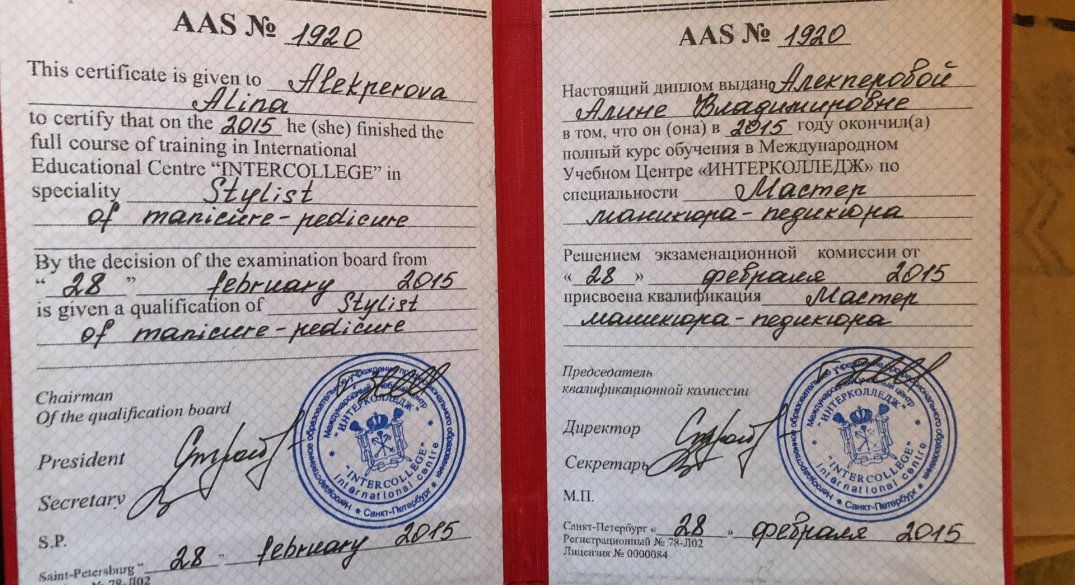 AAS № 1920
This certificate is given to Alekperova
Alina
to certify that on the 2015 he (she) finished the
full course of training in International
Educational Centre “INTERCOLLEGE” in
speciality Stylist
of manicure-pedicure
By the decision of the examination board from
“ 28 ” february 2015
is given a qualification of Stylist
of manicure-pedicure
Chairman
Of the qualification board
President
Secretary
S.P.
Saint-Petersburg “ 28 ” february 2015
№ 78-Л02
Международный учебный центр
"ИНТЕРКОЛЛЕДЖ"
"INTERCOLLEGE"
International centre
* Санкт-Петербург *
AAS № 1920
Настоящий диплом выдан Алекперовой
Алине Владимировне
в том, что он (она) в 2015 году окончил(а)
полный курс обучения в Международном
Учебном Центре «ИНТЕРКОЛЛЕДЖ» по
специальности Мастер
маникюра-педикюра
Решением экзаменационной комиссии от
« 28 » февраля 2015
присвоена квалификация Мастер
маникюра-педикюра
Председатель
квалификационной комиссии
Директор
Секретарь
М.П.
Санкт-Петербург « 28 » февраля 2015
Регистрационный № 78-Л02
Лицензия № 0000084
Международный учебный центр
"ИНТЕРКОЛЛЕДЖ"
"INTERCOLLEGE"
International centre
* Санкт-Петербург *